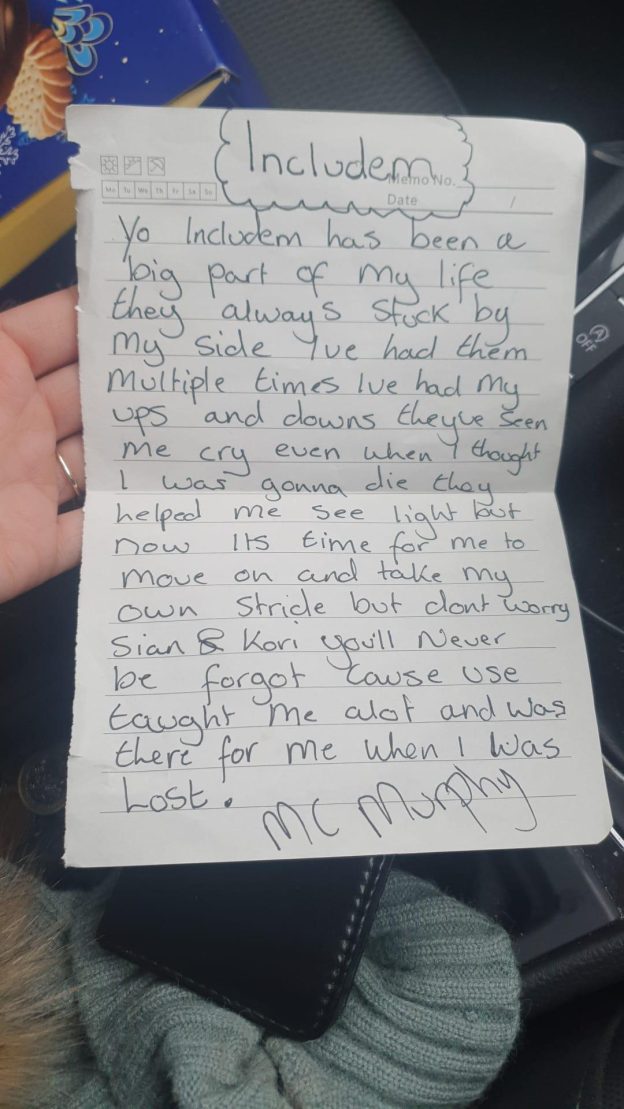 Includem
Memo No.
Mo Tu We Th Fr Sa Su
Date /
Yo Includem has been a
big part of my life
they always stuck by
my side Ive had them
multiple times Ive had my
ups and downs theyve seen
me cry even when I thought
I was gonna die they
helped me see light but
now its time for me to
move on and take my
own stride but dont worry
Sian & Kori you'll Never
be forgot cause use
taught me alot and was
there for me when I was
Lost.
MC Murphy
A OFF